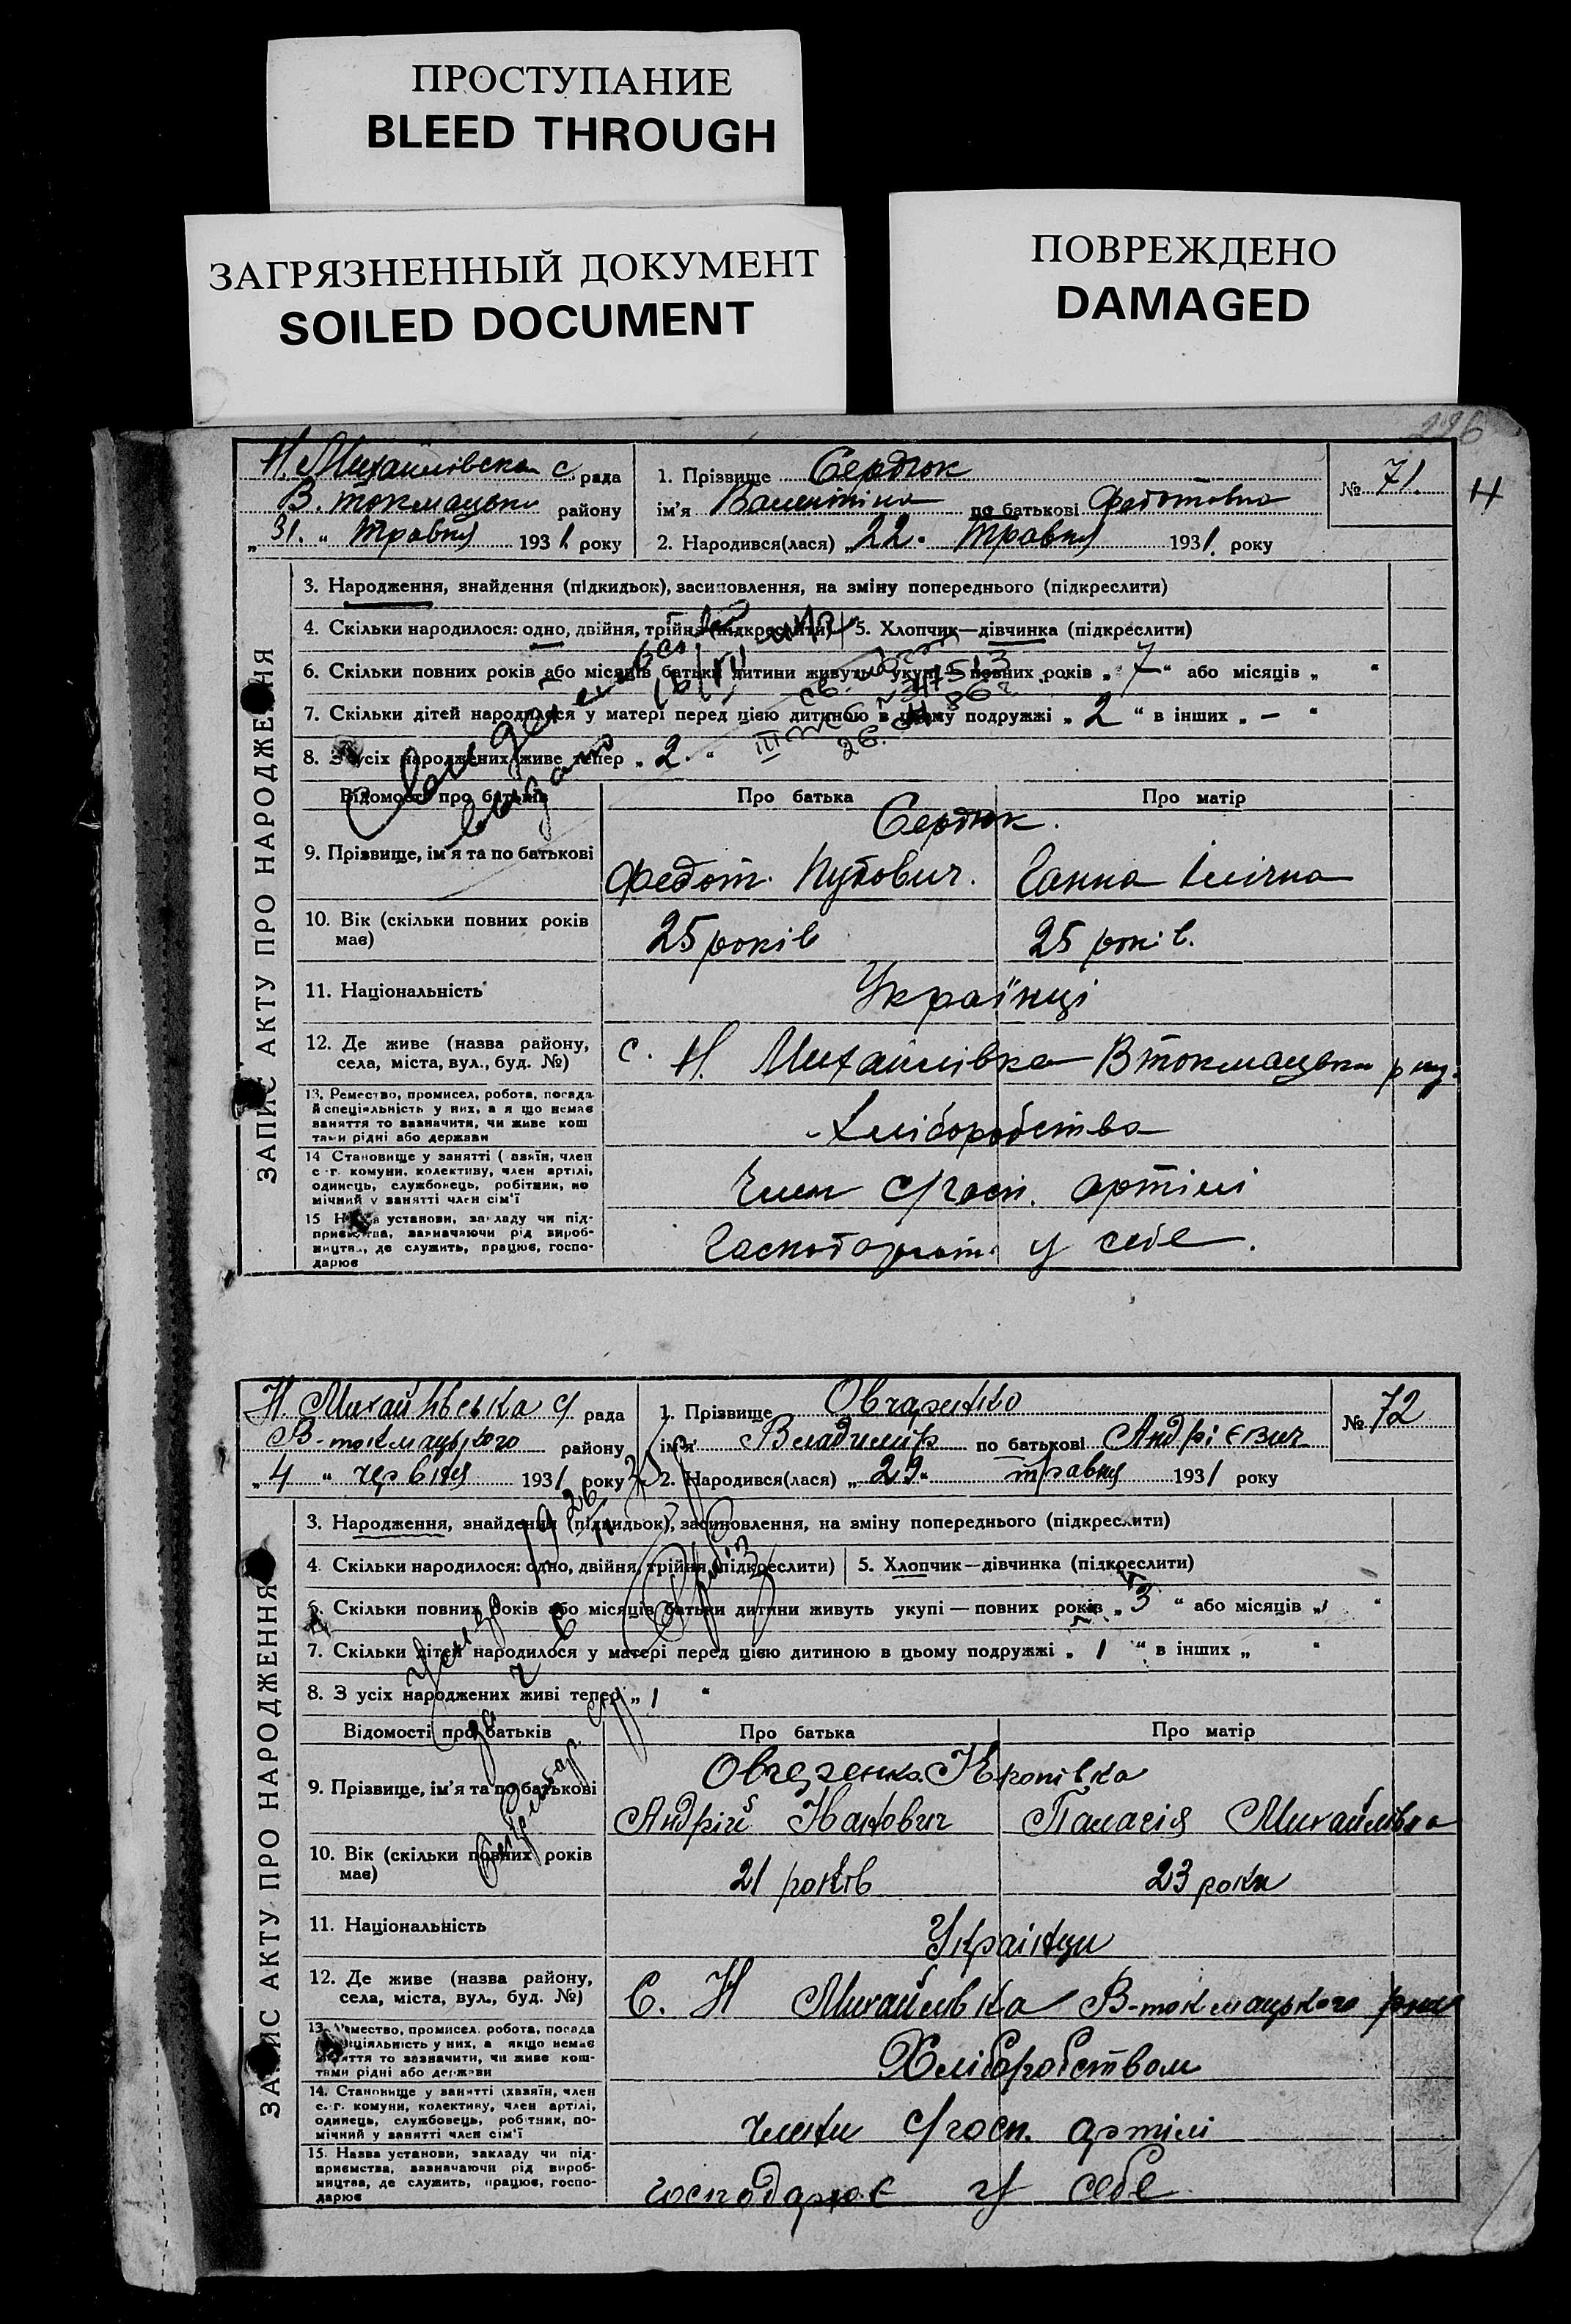 ПРОСТУПАНИЕ
BLEED THROUGH
ЗАГРЯЗНЕННЫЙ ДОКУМЕНТ
SOILED DOCUMENT
ПОВРЕЖДЕНО
DAMAGED
226
Н. Михайлівська с. рада
В. токмацьки району
„31.“ Травня 1931. року
1. Прізвище Сердюк
ім'я Валентина по батькові Федотовна
2. Народився(лася) „22. Травня 1931. року
№ 71.
Н
ЗАПИС АКТУ ПРО НАРОДЖЕННЯ
3. Народження, знайдення (підкидьок), засиновлення, на зміну попереднього (підкреслити)
4. Скільки народилося: одно, двійня, трійня (підкреслити) 5. Хлопчик—дівчинка (підкреслити)
6. Скільки повних років або місяців батьки дитини живуть укупі — повних років „7“ або місяців „ “
7. Скільки дітей народилося у матері перед цією дитиною в цьому подружжі „2“ в інших „—“
8. З усіх народжених живе тепер „2.“
Відомості про батьків Про батька Про матір
Сердюк.
9. Прізвище, ім'я та по батькові Федот Ганна Іллічна
10. Вік (скільки повних років має) 25 років 25 років.
11. Національність Українці
12. Де живе (назва району, села, міста, вул., буд. №) с. Н. Михайлівка Втокмацьки р-ну.
13. Ремество, промисел, робота, посада й спеціяльність у них, а я що немає заняття то зазначити, чи живе кош тами рідні або держави
Хліборобства
14 Становище у занятті (хазяїн, член с.-г. комуни, колективу, член артілі, одинець, службовець, робітник, помічний у занятті член сім'ї
Член с/госп. артілі
15 Назва установи, закладу чи підприємства, зазначаючи рід виробництва, де служить, працює, господарює
у себе.
Н. Михайлівська с/ рада
В-токмацького району
„4“ червня 1931 року
1. Прізвище Овчаренко
ім'я Владимір по батькові Андрієвич
2. Народився(лася) „29“ травня 1931 року
№ 72
ЗАПИС АКТУ ПРО НАРОДЖЕННЯ
3. Народження, знайдення (підкидьок), засиновлення, на зміну попереднього (підкреслити)
4. Скільки народилося: одно, двійня, трійня (підкреслити) 5. Хлопчик—дівчинка (підкреслити)
6. Скільки повних років або місяців батьки дитини живуть укупі — повних років „3“ або місяців „ “
7. Скільки дітей народилося у матері перед цією дитиною в цьому подружжі „1“ в інших „ “
8. З усіх народжених живі тепер „1“
Відомості про батьків Про батька Про матір
Овчаренко
9. Прізвище, ім'я та по батькові Андрій Іванович Палагія Михайлівна
10. Вік (скільки повних років має) 21 років 23 роки
11. Національність Українци
12. Де живе (назва району, села, міста, вул., буд. №) С. Н Михайлівка В-токмацького р-на
13. Ремество, промисел, робота, посада спеціяльність у них, а якщо немає заняття то зазначити, чи живе коштами рідні або держави
Хліборобством
14. Становище у занятті (хазяїн, член с.-г. комуни, колективу, член артілі, одинець, службовець, робітник, помічний у занятті член сім'ї
члени с/госп. артілі
15. Назва установи, закладу чи підприємства, зазначаючи рід виробництва, де служить, працює, господарює
господарює у себе